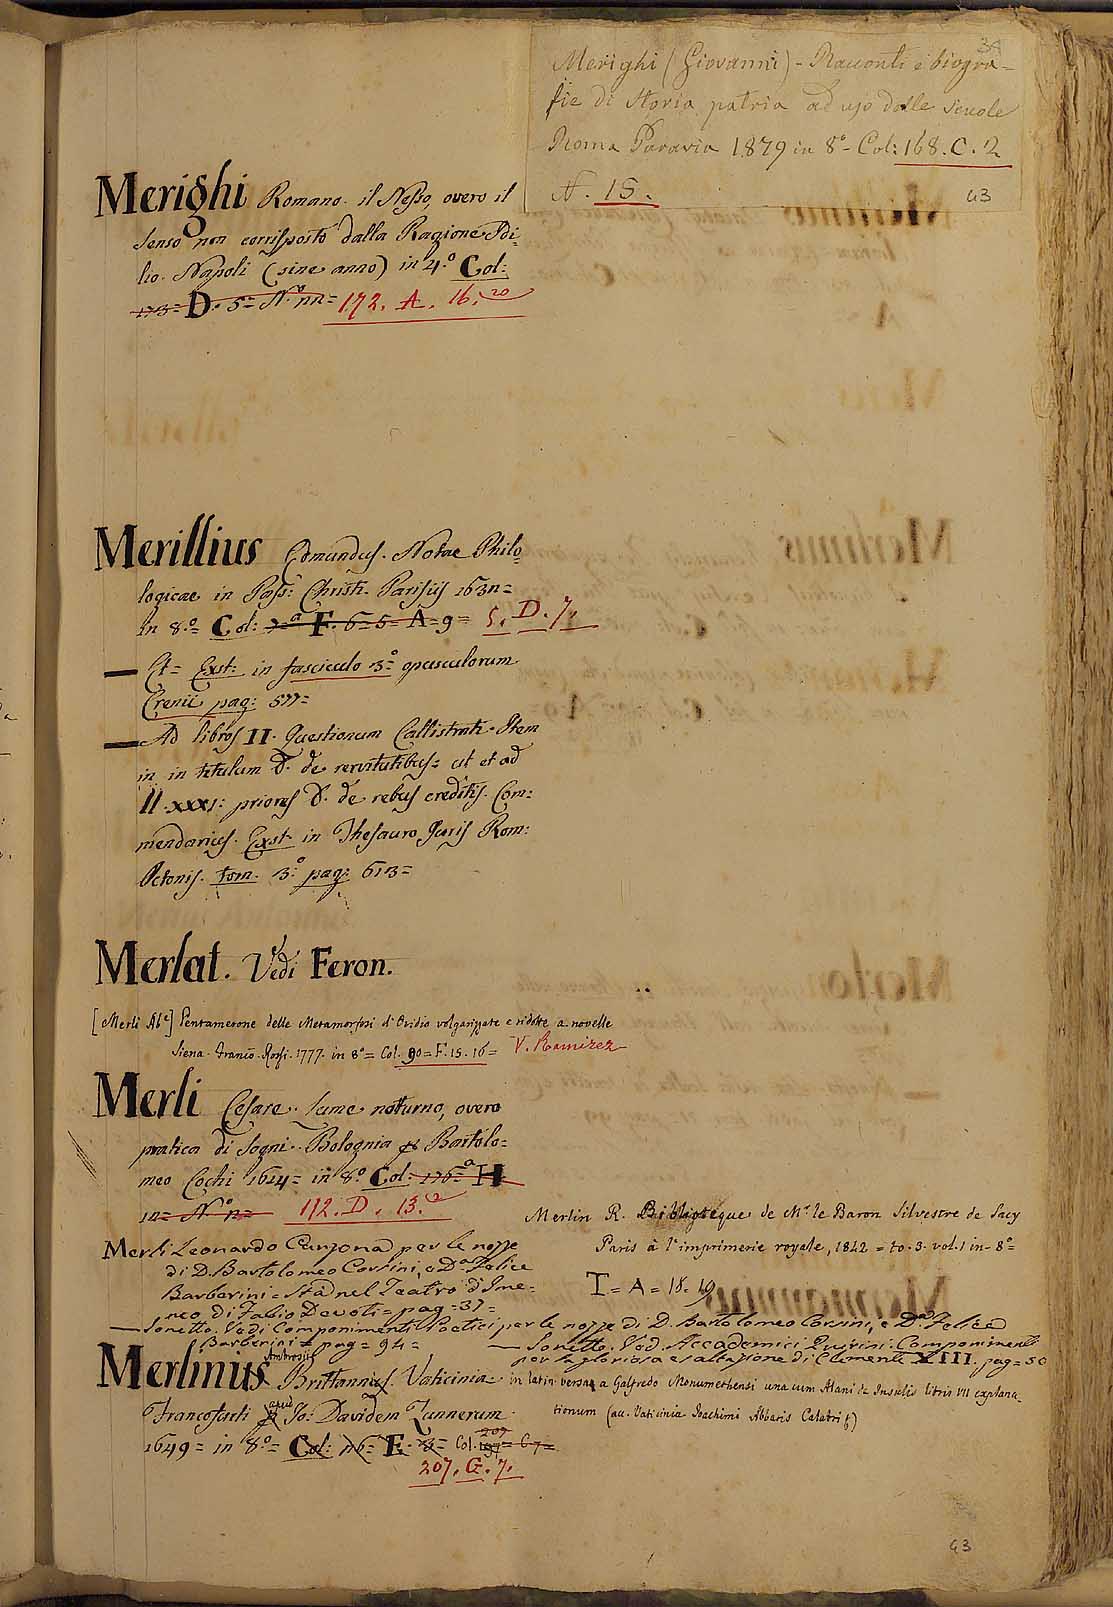 Merighi (Giovanni) - Racconti e biogra-
fie di Storia patria ad uso delle scuole
Roma Paravia 1879 in 8° - Col: 168. C. 2
N. 15.
43
Merighi Romano. il Nesso, overo il
senso non corrisposto dalla Ragione Idi-
lio. Napoli (sine anno) in 4.° Col:
173= D. 5= N.° nn= 172. A. 16. 20
Merillius Edmundus. Notae Philo-
logicae in Pass: Christi. Parisijs 163n=
in 8.° Col: F. 6=5= A=9= 5. D. 7.
Et= Exst: in fasciculo 3.° opusculorum
Crenii pag: 577=
Ad libros II. Questionum Callistrati. Item
in in titulum D. de servitutibus: ut et ad
ll. xxxi: priores D. de rebus creditis. Com:
mendarius. Exst. in Thesauro Juris Rom:
Octonis. tom. 3.° pag: 613=
Merlat. Vedi Feron.
[Merli Ab.e] Pentamerone delle Metamorfosi d'Ovidio volgarizzate e ridotte a novelle
Siena. Franc.o Rossi. 1777. in 8°= Col. 90= F. 15. 16= V. Ramirez
Merli Cesare. Lume notturno, overo
pratica di sogni. Bologna Bartolo=
meo Cochi 1614= in 8.° Col: 176= a H
in= N.° n= 112. D. 13.
Merlin R. Biblioteque de M.r le Baron Silvestre de Sacy
Paris à l'imprimerie royale, 1842 = to. 3. vol. 1 in-8°=
T = A = 18. 19
Merli Leonardo Canzona per le nozze
di D. Bartolomeo Corsini, e D.a Felice
Barberini= Sta nel Teatro d'Ime=
neo di Fabio Devoti= pag=37=
Sonetto. Vedi Componimenti Poetici per le nozze di D. Bartolomeo Corsini, e D.a Felice
Barberini= pag=94=
Sonetto. Ved. Accademici Quirini. Componimenti
per la gloriosa esaltazione di Clemente XIII. pag=50
Merlinus Ambrosius Brittannus. Vaticinia in latin. versa a Galfredo Monumethensi una cum Alani de Insulis libris VII explana
tionum (au. Vaticinia Joachimi Abbatis Calabri &)
Francofurti apud Jo: Davidem Zunnerum
1649= in 8.°= Col: 116= F. 8= Col. 197 207= C 7=
207. G. 7.
43